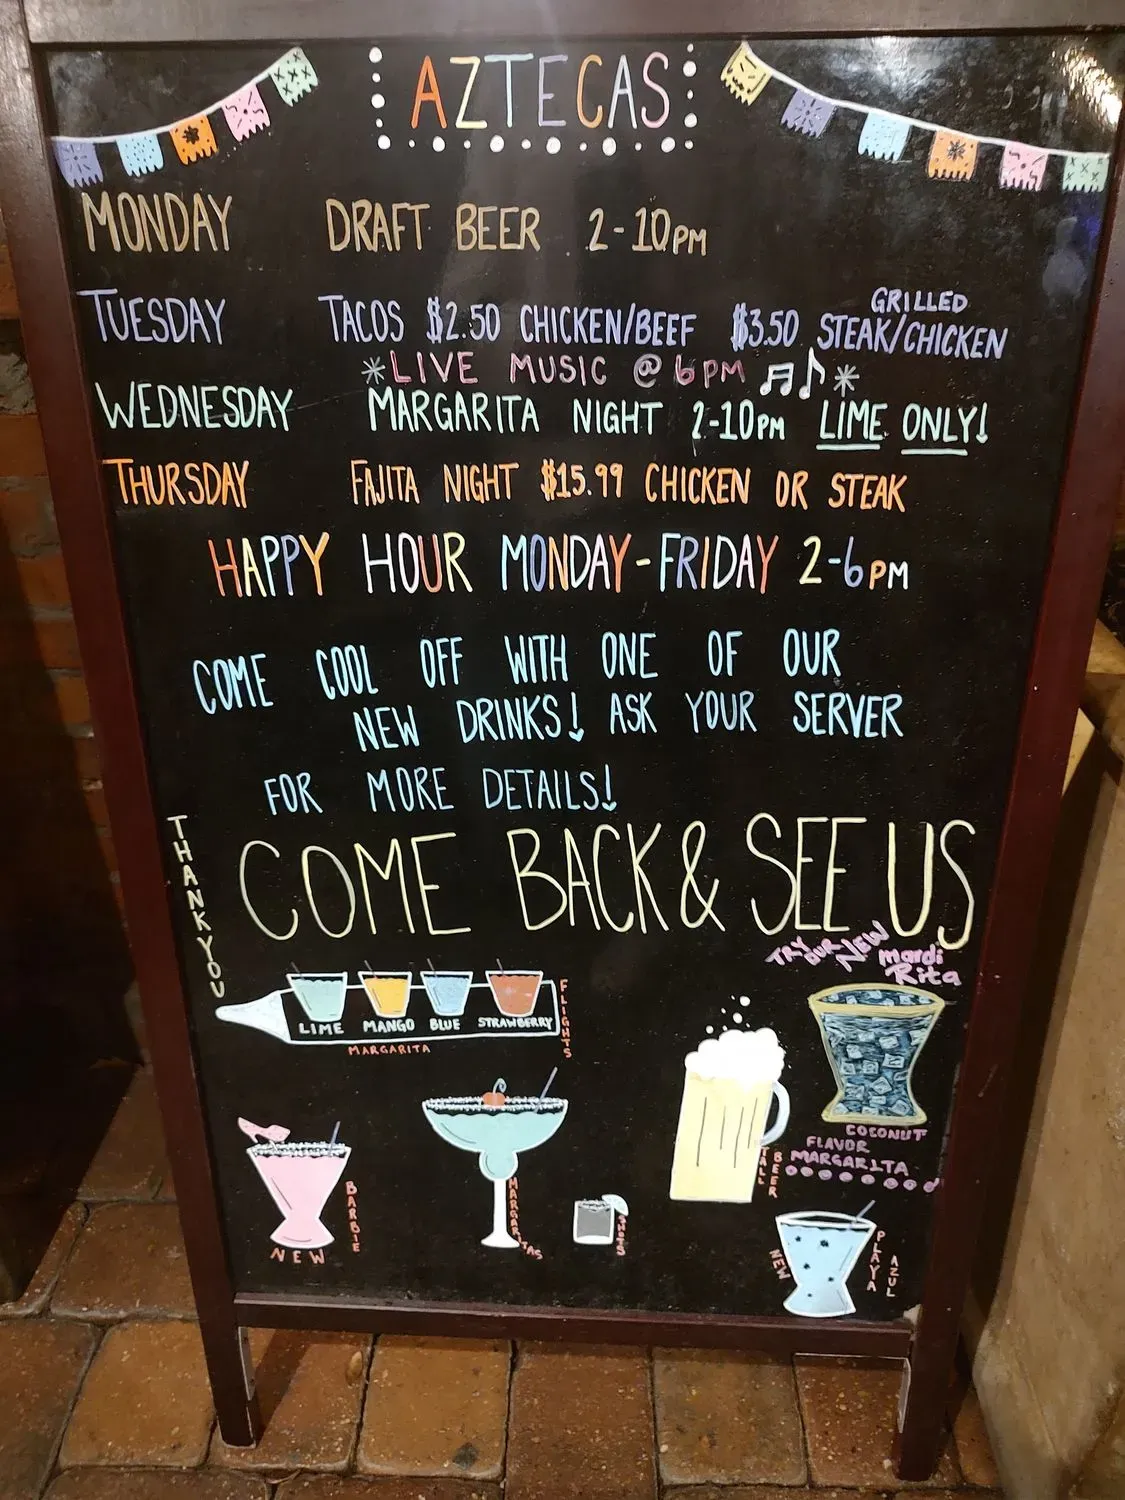 AZTECAS
MONDAY DRAFT BEER 2-10PM
GRILLED
TUESDAY TACOS $2.50 CHICKEN/BEEF $3.50 STEAK/CHICKEN
*LIVE MUSIC @ 6PM *
WEDNESDAY MARGARITA NIGHT 2-10PM LIME ONLY!
THURSDAY FAJITA NIGHT $15.99 CHICKEN OR STEAK
HAPPY HOUR MONDAY-FRIDAY 2-6PM
COME COOL OFF WITH ONE OF OUR
NEW DRINKS! ASK YOUR SERVER
FOR MORE DETAILS!
THANK YOU
COME BACK & SEE US
TRY OUR NEW mardi
Rita
LIME MANGO BLUE STRAWBERRY
MARGARITA
FLIGHTS
COCONUT
FLAVOR
MARGARITA
TALL BEER
BARBIE
NEW
MARGARITAS
SHOTS
NEW
PLAYA AZUL